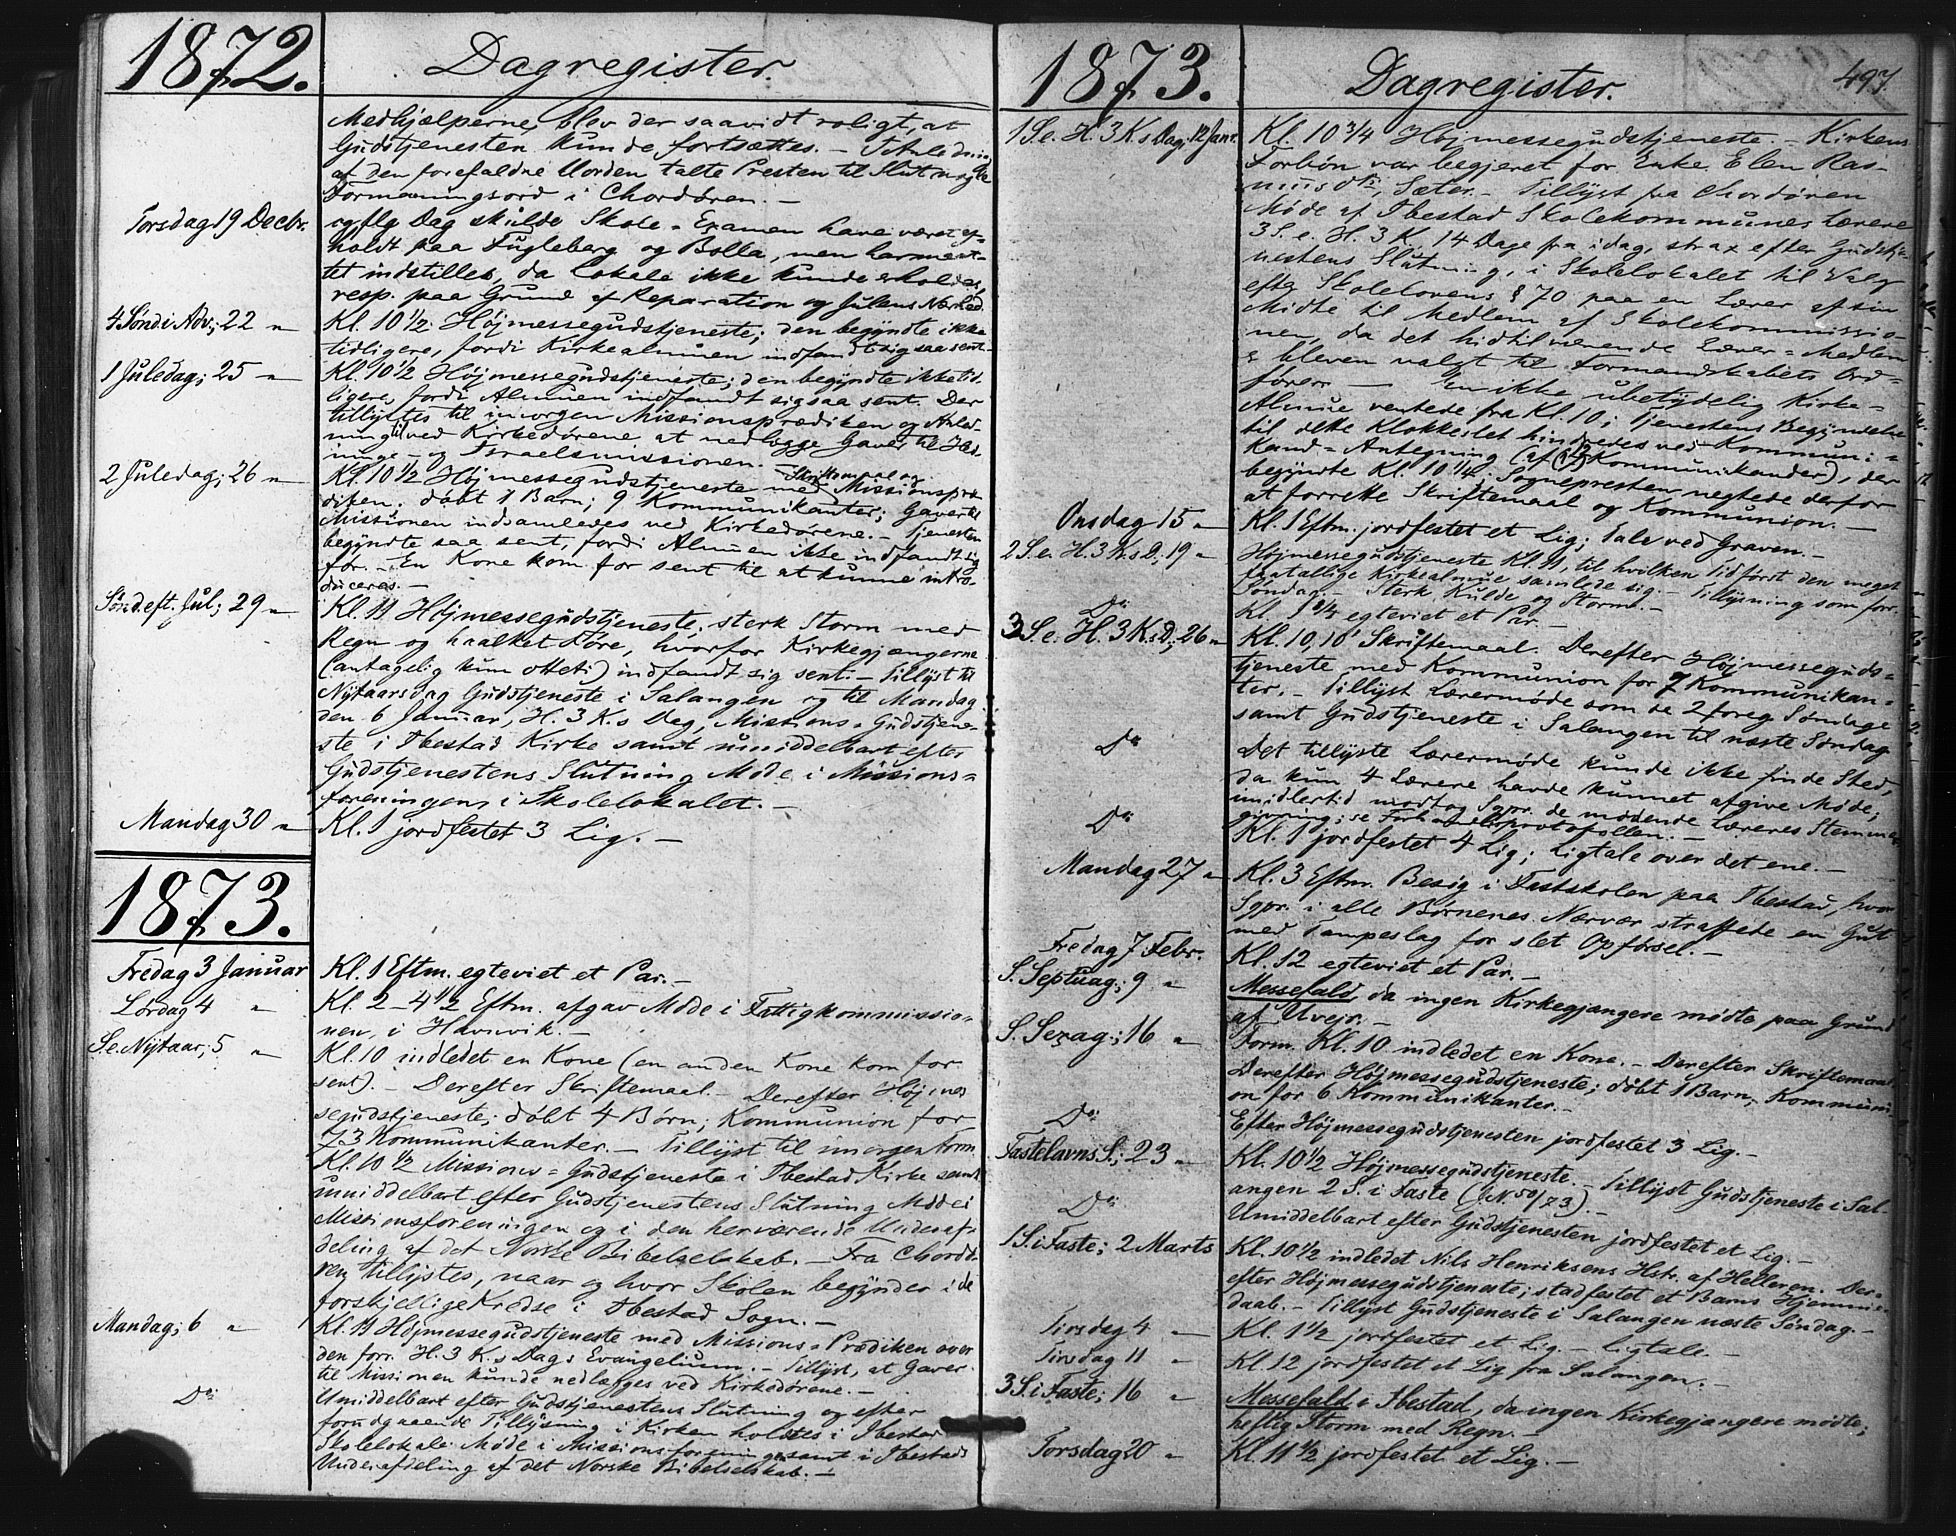 1872.
Dagregister.
Medhjælperne, blev der saavidt roligt, at
Gudstjenesten kunde fortsættes. – I Anledning
af den forefaldne Uorden talte Presten til Slut nogle
Formaningsord i Chordøren. –
Torsdag 19 Decbr. og flg Dag skulde Skole-Examen have været af-
holdt paa Fugleberg og Bolla, men har maat-
tet indstilles, da Lokale ikke kunde erholdes,
resp. paa Grund af Reparation og Julens Nærhed.
4 Sønd i Adv; 22 " Kl. 10 1/2 Højmessegudstjeneste; den begyndte ikke
tidligere, fordi Kirkealmuen indfandt sig saa sent.
1 Juledag; 25 " Kl. 10 1/2 Højmessegudstjeneste; den begyndte ikke tid-
ligere, fordi Almuen indfandt sig saa sent. Der
tillystes til imorgen Missionsprædiken og Anled-
ning til ved Kirkedørene at nedlægge Gaver til Hed-
ninge- og Israelsmissionen. –
2 Juledag; 26 " Kl. 10 1/2 Højmessegudstjeneste med Skriftemaal og Missionspræ-
diken, døbt 1 Barn; 9 Kommunikanter; Gaver til
Missionen indsamledes ved Kirkedørene. – Tjenesten
begyndte saa sent, fordi Almuen ikke indfandt sig
før. – En Kone kom for sent til at kunne intro-
duceres. –
Sønd. eft. Jul; 29 " Kl. 11 Højmessegudstjeneste, sterk Storm med
Regn og haalket Føre, hvorfor Kirkegjængerne
(antagelig kun otteti) indfandt sig sent. – Tillyst til
Nytaarsdag Gudstjeneste i Salangen og til Mandag
den 6 Januar, H. 3 K.s Dag, Missions-Gudstjene-
ste i Ibestad Kirke samt umiddelbart efter
Gudstjenestens Slutning Møde i Missions-
foreningen i Skolelokalet. –
Mandag 30 " Kl. 1 jordfestet 3 Lig. –
1873.
Fredag 3 Januar Kl. 1 Eftm. egteviet et Par. –
Lørdag 4 " Kl. 2–4 1/2 Eftm. afgav Møde i Fattigkommissio-
nen, i Havnvik. –
S. e. Nytaar; 5 " Kl. 10 indledet en Kone (en anden Kone kom for
sent). – Derefter Skriftemaal. – Derefter Højmes-
segudstjeneste; døbt 4 Børn, Kommunion for
73 Kommunikanter. – Tillyst til imorgen Form.
Kl. 10 1/2 Missions-Gudstjeneste i Ibestad Kirke samt
umiddelbart efter Gudstjenestens Slutning Møde i
Missionsforeningen og i den herværende Underaf-
deling af det Norske Bibelselskab. – Fra Chordø-
ren tillystes, naar og hvor Skolen begynder i de
forskjellige Kredse i Ibestad Sogn. –
Mandag; 6 " Kl. 11 Højmessegudstjeneste med Missions-Prædiken over
den forr. H. 3 K.s Dags Evangelium. – Tillyst, at Gaver
til Missionen kunde nedlægges ved Kirkedørene. –
Do Umiddelbart efter Gudstjenestens Slutning og efter
forudgaaende Tillysning i Kirken holdtes i Ibestad
Skolelokale Møde i Missionsforeningen samt i Ibestads
Underafdeling af det Norske Bibelselskab. –
1873.
Dagregister.
497
1 S. e. H. 3 K.s Dag; 12 Janr. Kl. 10 3/4 Højmessegudstjeneste. – Kirkens
Forbøn var begjeret for Enke Elen Ras-
musdtr, Sæter. – Tillyst fra Chordøren
Møde af Ibestad Skolekommunes Lærere
3 S. e. H. 3 K., 14 Dage fra idag, strax efter Gudstje-
nestens Slutning, i Skolelokalet til Valg
efter Skolelovens § 70 paa en Lærer af sin
Midte til Medlem af Skolekommissio-
nen, da det hidtilværende Lærer-Medlem
er bleven valgt til Formandskabets Ord-
fører. – En ikke ubetydelig Kirke-
Almue ventede fra Kl. 10; Tjenestens Begyndelse
til dette Klokkeslet hindredes ved Kommuni-
kand-Antegning (af 12 Kommunikander), der
begyndte Kl. 10 1/4; Sognepresten negtede derfor
at forrette Skriftemaal og Kommunion. –
Onsdag 15 " Kl. 1 Eftm. jordfestet et Lig; Tale ved Graven. –
2 S. e. H. 3 K.s D; 19 " Højmessegudstjeneste Kl. 11, til hvilken Tid først den meget
faatallige Kirkealmue samlede sig. – Tillysning som forr.
Søndag. – Sterk Kulde og Storm. –
Do Kl. 1 3/4 egteviet et Par. –
3 S. e. H. 3 K.s D; 26 " Kl. 10,10' Skriftemaal. Derefter Højmessegudst-
jeneste med Kommunion for 7 Kommunikan-
ter. – Tillyst Lærermøde som de 2 foreg. Søndage
samt Gudstjeneste i Salangen til næste Søndag.
Do Det tillyste Lærermøde kunde ikke finde Sted,
da kun 4 Lærere havde kunnet afgive Møde;
imidlertid modtog Sgpr. de mødende Læreres Stemme-
givning; se Forhandlsprotokollen. –
Do Kl. 1 jordfestet 4 Lig; Ligtale over det ene. –
Mandag 27 " Kl. 3 Eftm. Besøg i Fastskolen paa Ibestad, hvor
Sgpr. i alle Børnenes Nærvær straffede en Gut
med Tampeslag for slet Opførsel. –
Fredag 7 Febr. Kl. 12 egteviet et Par. –
S. Septuag; 9 " Messefald, da ingen Kirkegjængere mødte paa Grund
af Uvejr. –
S. Sexag.; 16 " Form. Kl. 10 indledet en Kone. – Derefter Skriftemaal.
Derefter Højmessegudstjeneste; døbt 1 Barn, Kommuni-
on for 6 Kommunikanter. –
Do Efter Højmessegudstjenesten jordfestet 3 Lig. –
Fastelavns S.; 23 " Kl. 10 1/2 Højmessegudstjeneste. – Tillyst Gudstjeneste i Sal-
angen 2 S. i Faste (J. N. 50/73). –
Do Umiddelbart efter Gudstjenesten jordfestet et Lig. –
1 S. i Faste; 2 Marts Kl. 10 1/2 indledet Nils Henriksens Hstr. af Helleren. Der-
efter Højmessegudstjeneste; stadfestet et Barns Hjemme-
daab. – Tillyst Gudstjeneste i Salangen næste Søndag. –
Tirsdag 4 " Kl. 1 1/2 jordfestet et Lig. – Ligtale. –
Tirsdag 11 " Kl. 12 jordfestet et Lig fra Salangen.
3 S. i Faste; 16 " Messefald i Ibestad, da ingen Kirkegjængere mødte;
heftig Storm med Regn. –
Torsdag 20 " Kl. 11 1/2 jordfestet et Lig. –